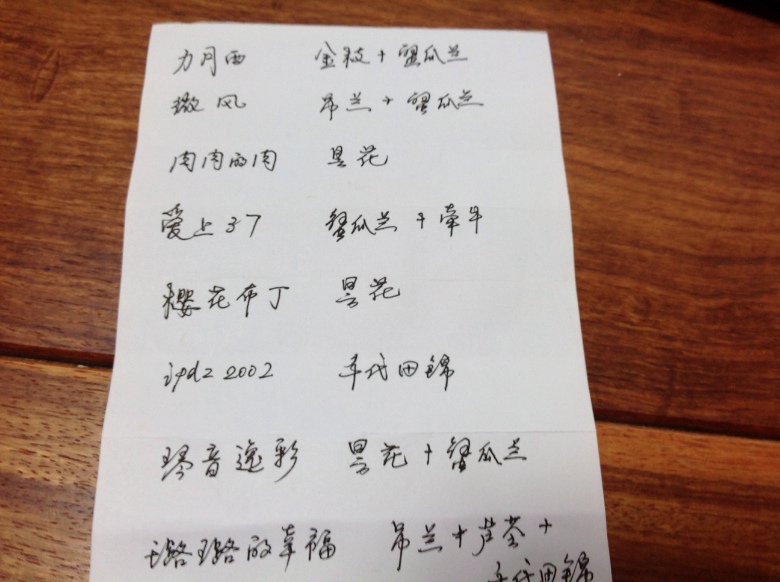 力月西 金枝+蟹爪兰
微风 吊兰+蟹爪兰
肉肉的肉 昙花
爱上37 蟹爪兰+牵牛
樱花布丁 昙花
ipdz2002 千代田锦
琴音逸彩 昙花+蟹爪兰
璐璐的幸福 吊兰+芦荟+
千代田锦